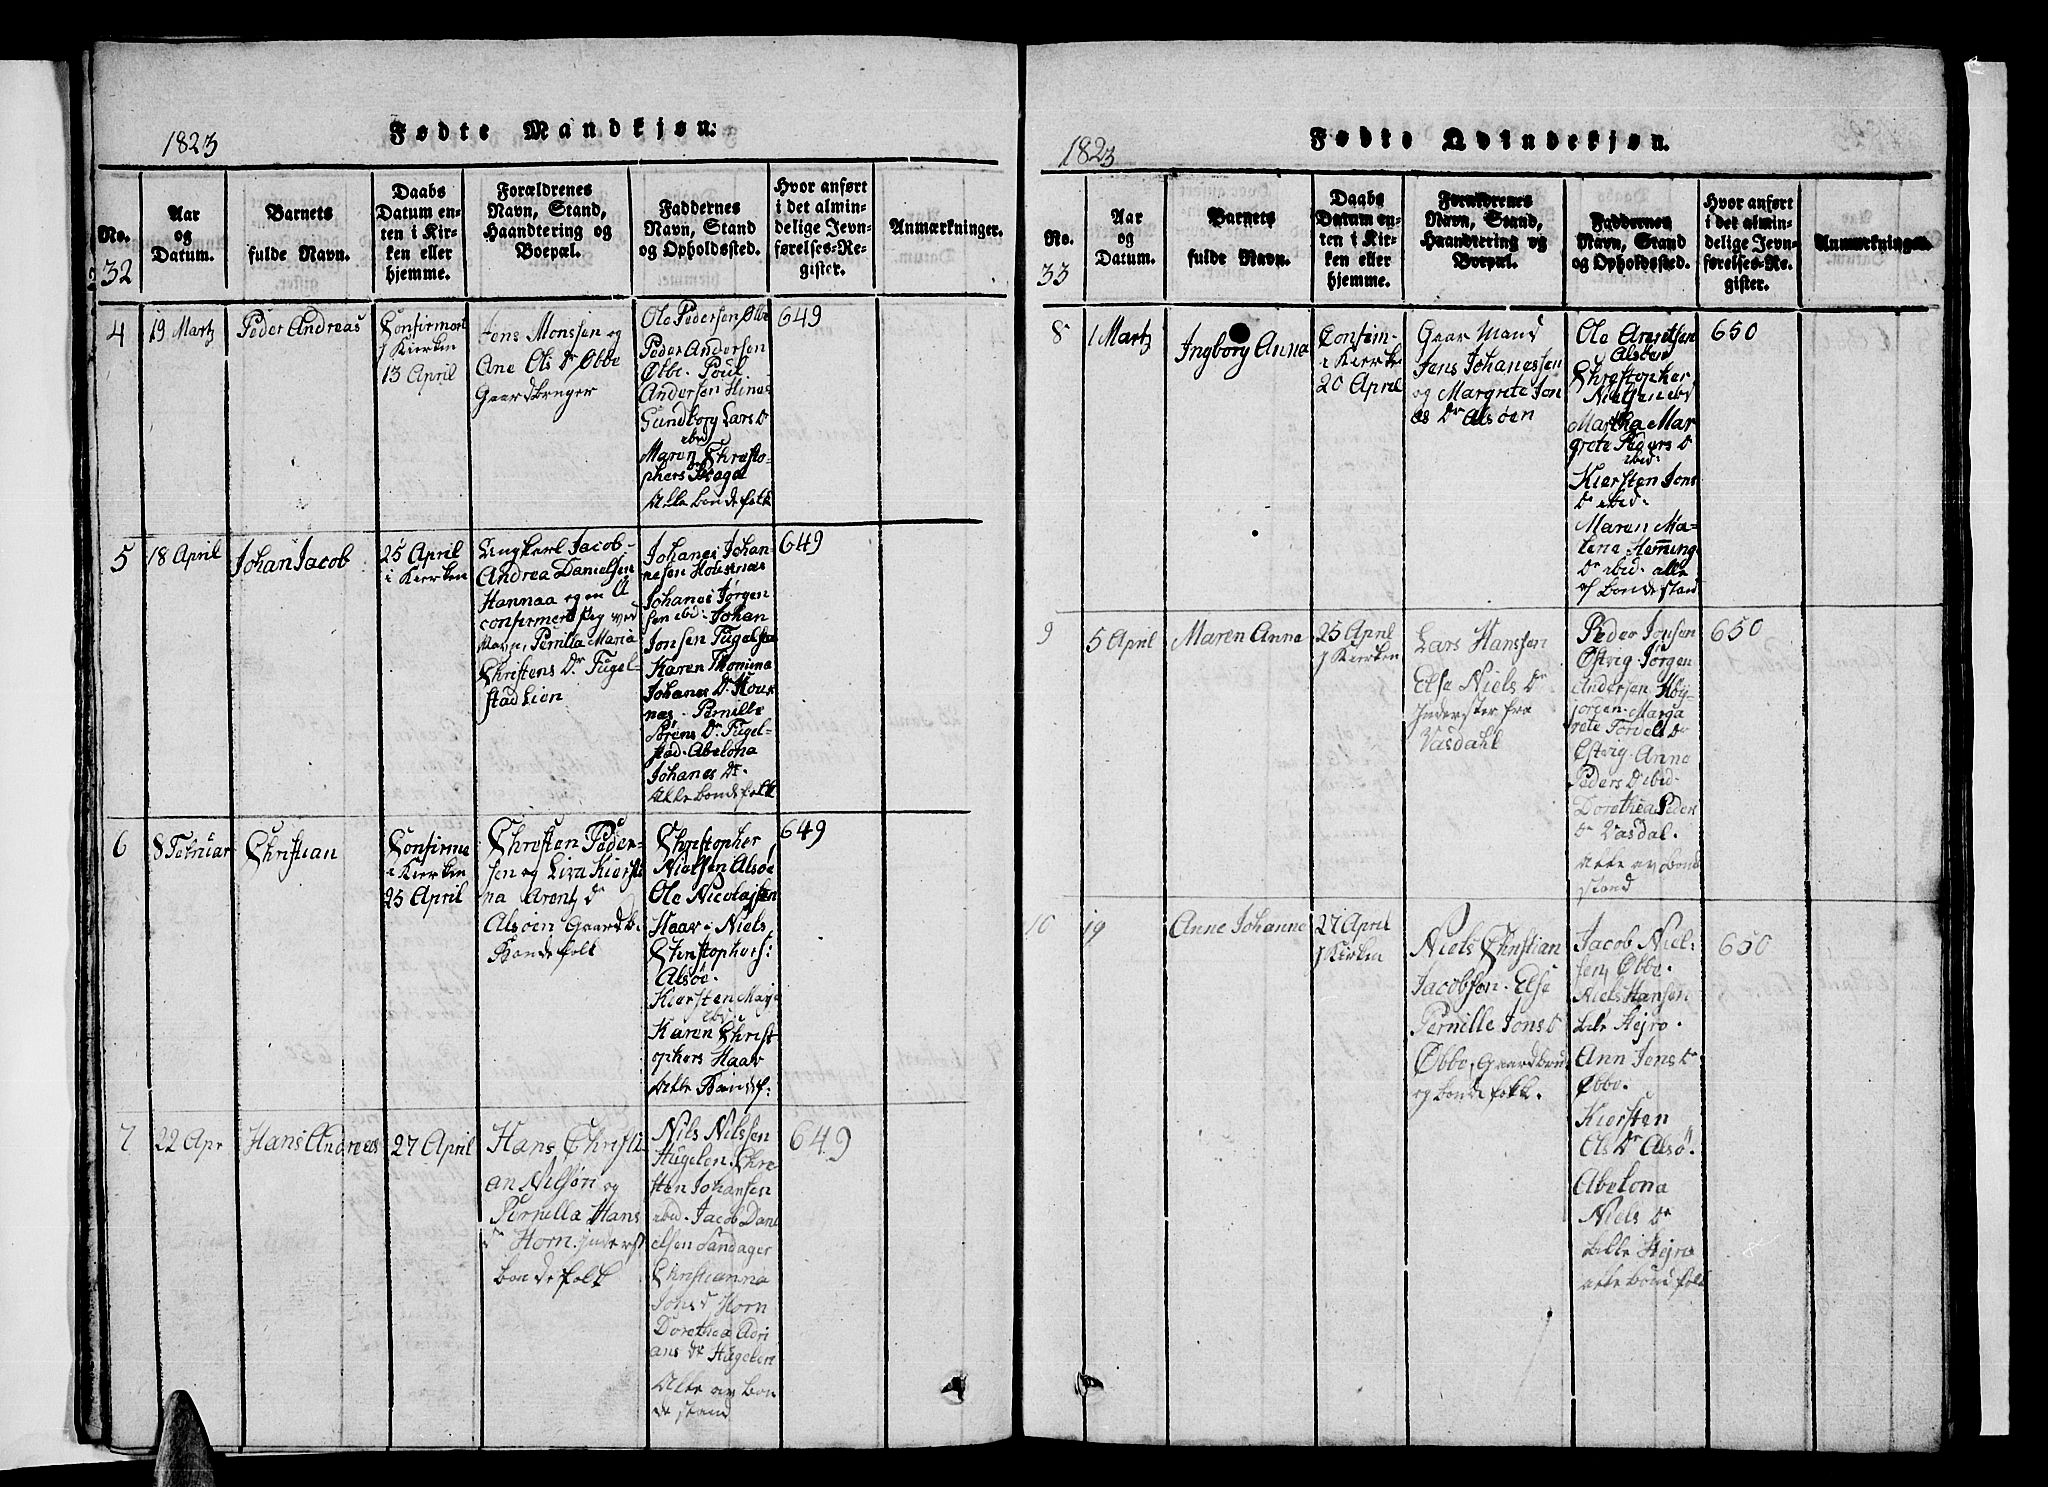 1823
Fødte Mandkjøn:
No.
32
Aar
og
Datum.
Barnets
fulde Navn.
Daabs
Datum en-
ten i Kir-
ken eller
hjemme.
Forældrenes
Navn, Stand,
Haandtering og
Boepæl.
Faddernes
Navn, Stand
og Opholdssted.
Hvor anført
i det almin-
delige Jevn-
førelses-Re-
gister.
Anmærkninger.
4
19 Martz
Peder Andreas
Confirmert
i Kierken
13 April
Jens Monssen og
Ane Ols Dr Øbbe
Gaardbruger
Ole Pedersen Øbbe
Peder Andersen
Øbbe. Poul
Andersen Hines
Gundborg Lars D
ebd
Maren Christo-
phers Braga
Alle bondefolk
649
5
18 April
Johan Jacob
25 April
i Kierken
Ungkerl Jacob
Andrea Danielsen
Hannaa og en U
confirmert Pig ved
Navn, Pernilla Maria
Christens Dr Fugel-
stad Lien
Johanes Johan-
nesen Housnæs
Johanes Jørgen
sen ebd: Johan
Jonsen Fugelstad
Karen Thomina
Johanes D. Hous
næs. Pernille
Sørens Dr. Fugel-
stad. Abelona
Johanes Dr.
Alle bondefolk
649
6
8 Februar
Christian
Confirme
i Kierken
25 April
Christen Peder-
sen og Liza Kiersti
na Arentz dr
Alsøen Gaard b.
Bondefolk
Christopher
Nielsen Alsøe
Ole Nicolajsen
Haav. Niels
Christophers:
Alsøe.
Kiersten Marja
ebd.
Karen Christ
ophers Haav
Alle Bondef:
649
7
22 Apr
Hans Andreas
27 April
Hans Christi
an Nilsøn og
Pernella Hans
Dr Horn. inderst
bondefolk
Nils Nilssen
Hugelen. Chre-
sten Johansen
ebd. Jacob Dani
elsen Sandager
Christianna
Jons d Horn
Dorothea Adri
ans dr Hugelen
Alle av bon
de stand
649
1823
Fødte Qvindekjøn.
No.
33
Aar
og
Datum.
Barnets
fulde Navn.
Daabs
Datum en-
ten i Kir-
ken eller
hjemme.
Forældrenes
Navn, Stand,
Haandtering og
Boepæl.
Faddernes
Navn, Stand
og Opholdssted.
Hvor anført
i det almin-
delige Jevn-
førelses-Re-
gister.
Anmærkninger.
8
1 Martz
Ingborg Anna
Confirm-
i Kierke
20 April
Gaar Mand
Jens Johanessen
og Margrete Jon
as Dr Alsøen
Ole Arentsen
Alsøen
Christopher
Nielsen ebd
Martha Mar
grete Peders D
ebd:
Kiersten Jons
Dr ebd.
Maren Ma-
lena Hemming
Dr ebd. alle
af bondestand
650
9
5 April
Maren Anna
25 April
i Kierken
Lars Hanssen
Else Niels Dr
Inderster fra
Vasdahl
Peder Jonsen
Østvig. Jørgen
Andersen Høy-
jorden. Marga
rete Torvels Dr
Østvig. Anna
Peders D ebd.
Dorothea Peder
Dr Vasdal.
Alle av bond
stand
650
10
19
Anne Johanna
27 April
i Kierken
Niels Christian
Jacobsen. Else
Pernille Jons D
Øbbe, Gaardbrug
og bondefolk.
Jacob Niel-
sen, Øbbe.
Niels Hansen
Lille Hejro.
Ann Jens Dr
Øbbe.
Kiersten
Ols Dr Alsø.
Abelona
Niels Dr
Lille Hejro
alle bondefolk
650